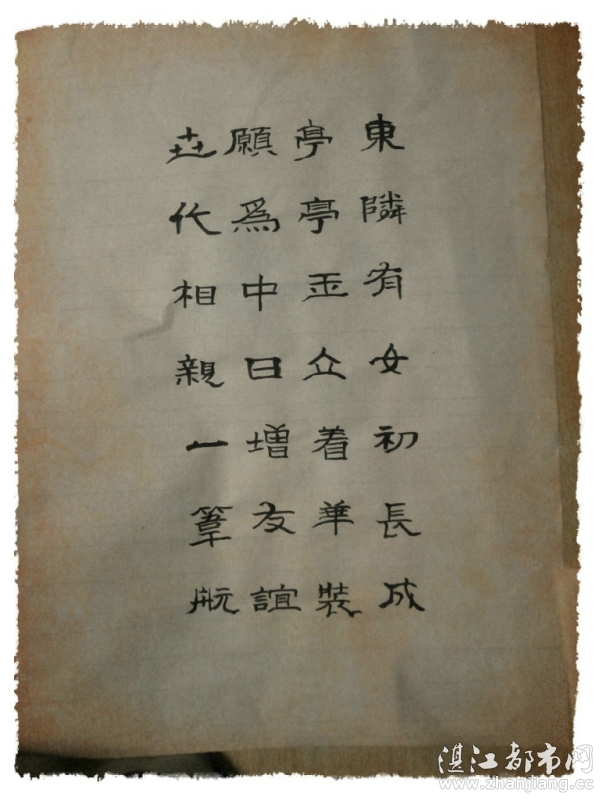 東隣有女初長成
亭亭玉立着華装
願為中日增友誼
世代相親一葦航
湛江都市网
www.zhanjiang.cc